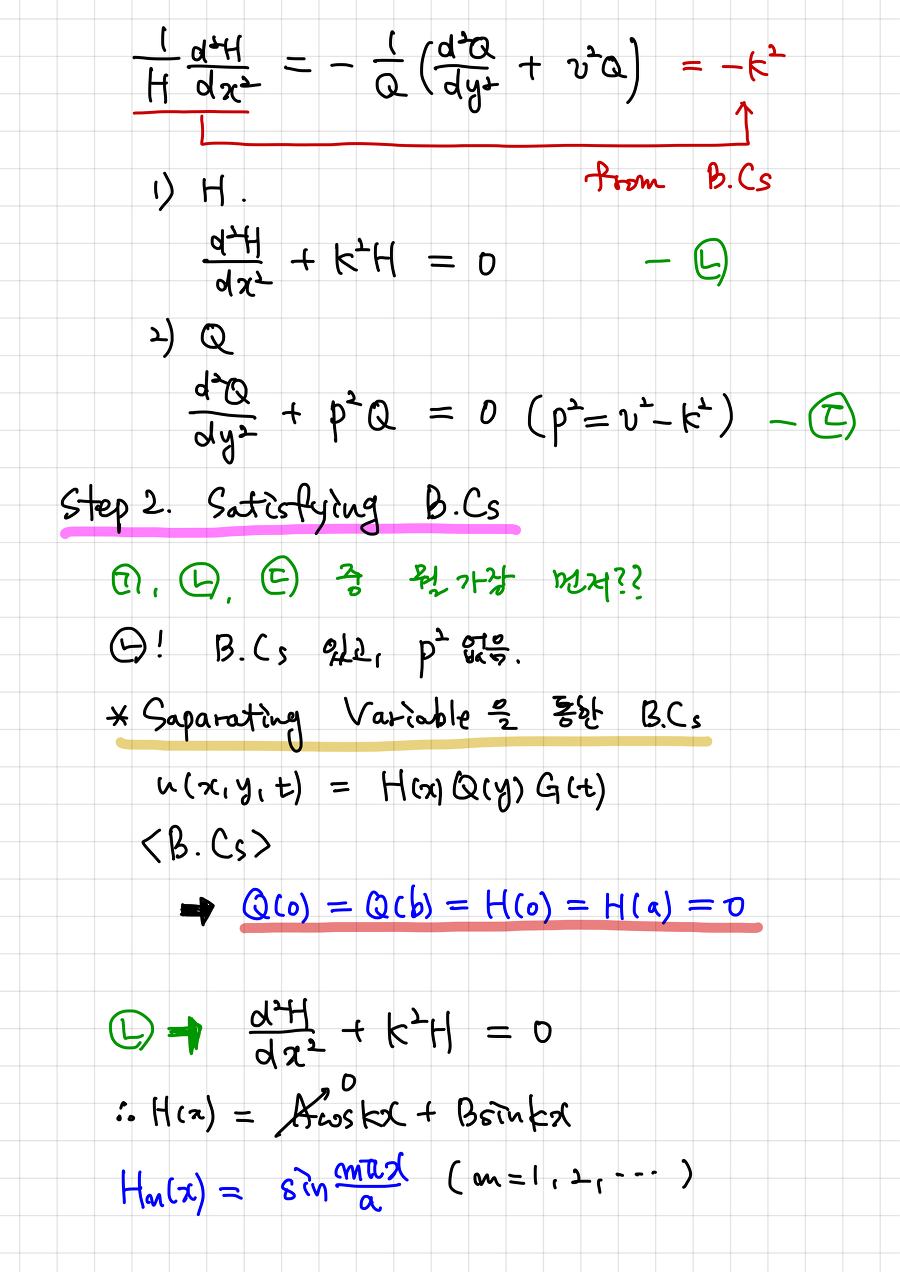 1/H d²H/dx² = - 1/Q (d²Q/dy² + ν²Q) = -k²
from B.Cs
1) H.
d²H/dx² + k²H = 0 - ㉡
2) Q
d²Q/dy² + p²Q = 0 (p² = ν² - k²) - ㉢
Step 2. Satisfying B.Cs
㉠, ㉡, ㉢ 중 뭘 가장 먼저??
㉡! B.Cs 있고, p² 없음.
* Saparating Variable을 통한 B.Cs
u(x, y, t) = H(x) Q(y) G(t)
<B.Cs>
➡ Q(0) = Q(b) = H(0) = H(a) = 0
㉡ ➡ d²H/dx² + k²H = 0
0
∴ H(x) = Acos kx + Bsin kx
Hm(x) = sin mπx/a (m = 1, 2, ⋯)